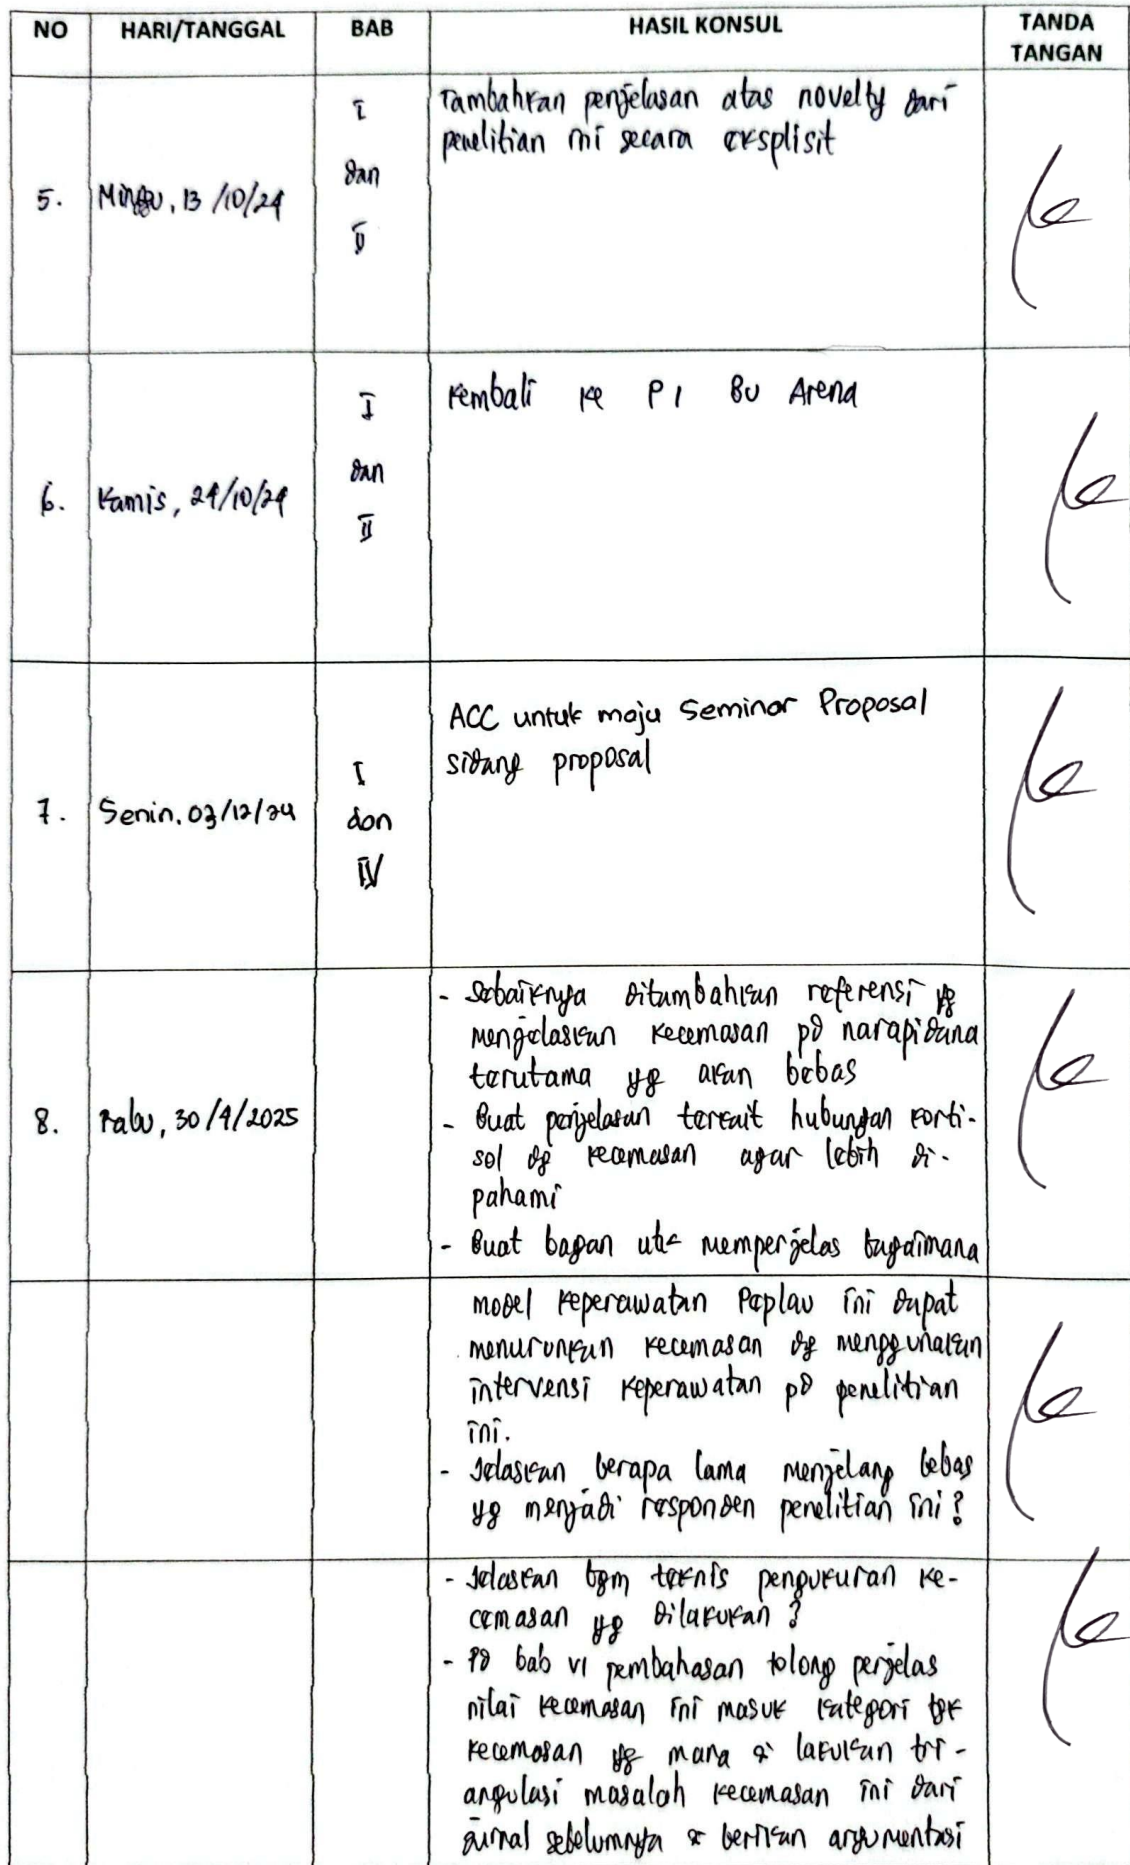 NO HARI/TANGGAL BAB HASIL KONSUL TANDA TANGAN
5. Minggu, 13/10/24 I dan II
Tambahkan penjelasan atas novelty dari
penelitian ini secara eksplisit
6. Kamis, 24/10/24 I dan II
Kembali ke P1 Bu Arena
7. Senin, 03/12/24 I dan IV
ACC untuk maju Seminar Proposal
sidang proposal
8. Rabu, 30/4/2025
- Sebaiknya ditambahkan referensi yg
mengelaskan kecemasan pd narapidana
terutama yg akan bebas
- Buat penjelasan terkait hubungan korti-
sol dg kecemasan agar lebih di-
pahami
- Buat bagan utk memperjelas bagaimana
model keperawatan Peplau ini dapat
menurunkan kecemasan dg menggunakan
intervensi keperawatan pd penelitian
ini.
- Jelaskan berapa lama menjelang bebas
yg menjadi responden penelitian ini?
- Jelaskan bgm teknis pengukuran ke-
cemasan yg dilakukan?
- Pd bab VI pembahasan tolong perjelas
nilai kecemasan ini masuk kategori tgk
kecemasan yg mana & lakukan tri-
angulasi masalah kecemasan ini dari
jurnal sebelumnya & berikan argumentasi